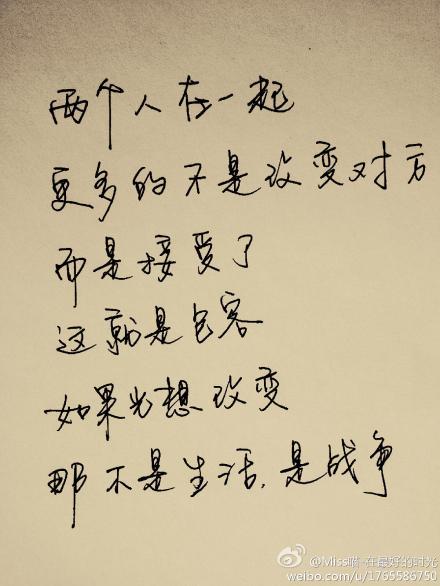 两个人在一起
更多的不是改变对方
而是接受了
这就是包容
如果光想改变
那不是生活,是战争
@Miss喵-在最好的时光
weibo.com/u/1765586750